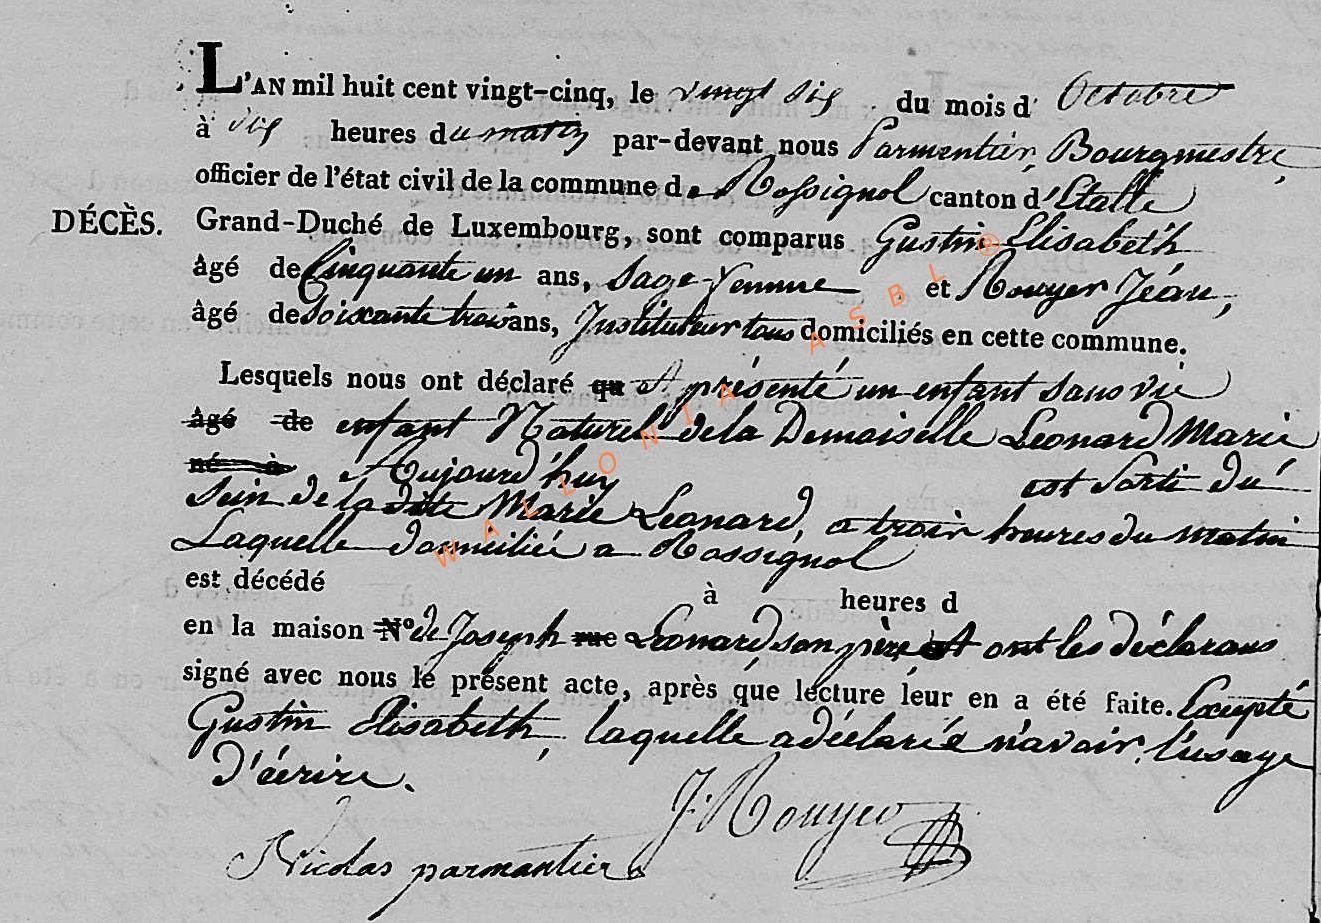 L'AN mil huit cent vingt-cinq, le vingt six du mois d' Octobre
à dix heures du matin par-devant nous Parmentier, Bourgmestre,
officier de l'état civil de la commune de Rossignol canton d'Etalle
DÉCÈS. Grand-Duché de Luxembourg, sont comparus Gustin Elisabeth
âgé de Cinquante un ans, Sage-femme et Rouyer Jéan,
âgé de Soixante trois ans, Instituteur tous domiciliés en cette commune.
Lesquels nous ont déclaré qu Et présenté un enfant Sans vie
âgé de enfant Naturel de la Demoiselle Leonard Marie
né à, et Aujourd'huy est Sorti du
Sein de la dite Marie Leonard, a trois heures du matin
Laquelle domeiliée a Rossignol
est décédé à heures d
en la maison N° de Joseph rue Leonard son père, Et ont les déclarans
signé avec nous le présent acte, après que lecture leur en a été faite. Excepté
Gustin Elisabeth, laquelle a déclaré n'avoir l'usage
D'écrire.
J. Rouyer
Nicolas parmantier
WALLONIA ASBL ®